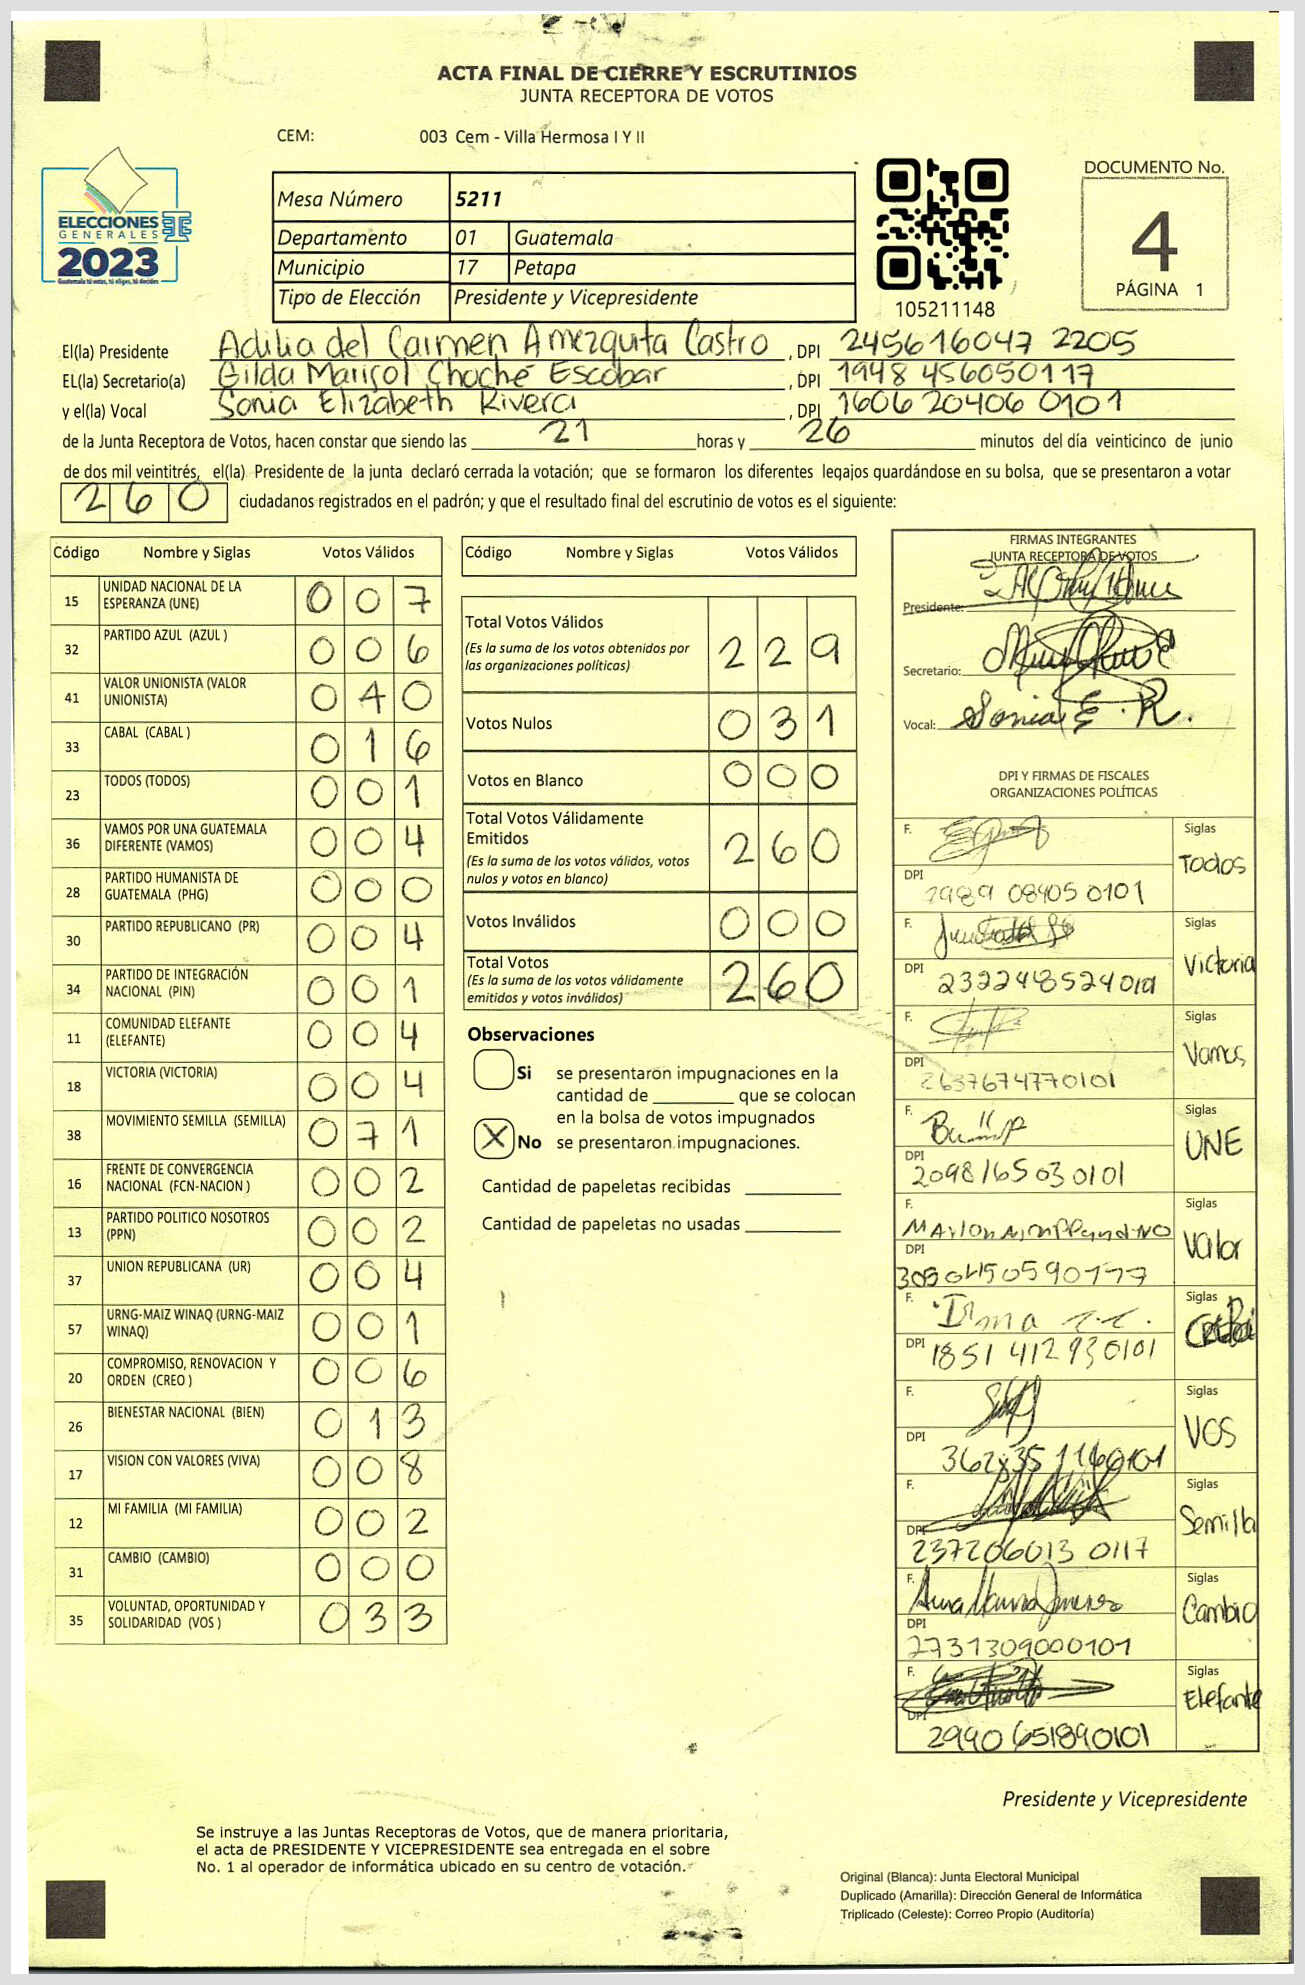 ACTA FINAL DE CIERRE Y ESCRUTINIOS
JUNTA RECEPTORA DE VOTOS
CEM: 003 Cem - Villa Hermosa I Y II
ELECCIONES
GENERALES
2023
Mesa Número 5211
Departamento 01 Guatemala
Municipio 17 Petapa
Tipo de Elección Presidente y Vicepresidente
105211148
DOCUMENTO No.
4
PÁGINA 1
El(la) Presidente Adilia del Carmen Amezquita Castro, DPI 245616047 2205
EL(la) Secretario(a) Gilda Marisol Choché Escobar, DPI 1948 456050117
y el(la) Vocal Sonia Elizabeth Rivera, DPI 160620406 0101
de la Junta Receptora de Votos, hacen constar que siendo las 21 horas y 26 minutos del día veinticinco de junio
de dos mil veintitrés, el(la) Presidente de la junta declaró cerrada la votación; que se formaron los diferentes legajos guardándose en su bolsa, que se presentaron a votar
260 ciudadanos registrados en el padrón; y que el resultado final del escrutinio de votos es el siguiente:
Código Nombre y Siglas Votos Válidos
15 UNIDAD NACIONAL DE LA ESPERANZA (UNE) 007
32 PARTIDO AZUL (AZUL ) 006
41 VALOR UNIONISTA (VALOR UNIONISTA) 040
33 CABAL (CABAL ) 016
23 TODOS (TODOS) 001
36 VAMOS POR UNA GUATEMALA DIFERENTE (VAMOS) 004
28 PARTIDO HUMANISTA DE GUATEMALA (PHG) 000
30 PARTIDO REPUBLICANO (PR) 004
34 PARTIDO DE INTEGRACIÓN NACIONAL (PIN) 001
11 COMUNIDAD ELEFANTE (ELEFANTE) 004
18 VICTORIA (VICTORIA) 004
38 MOVIMIENTO SEMILLA (SEMILLA) 071
16 FRENTE DE CONVERGENCIA NACIONAL (FCN-NACION ) 002
13 PARTIDO POLITICO NOSOTROS (PPN) 002
37 UNION REPUBLICANA (UR) 004
57 URNG-MAIZ WINAQ (URNG-MAIZ WINAQ) 001
20 COMPROMISO, RENOVACION Y ORDEN (CREO ) 006
26 BIENESTAR NACIONAL (BIEN) 013
17 VISION CON VALORES (VIVA) 008
12 MI FAMILIA (MI FAMILIA) 002
31 CAMBIO (CAMBIO) 000
35 VOLUNTAD, OPORTUNIDAD Y SOLIDARIDAD (VOS ) 033
Código Nombre y Siglas Votos Válidos
Total Votos Válidos 229
(Es la suma de los votos obtenidos por
las organizaciones políticas)
Votos Nulos 031
Votos en Blanco 000
Total Votos Válidamente
Emitidos 260
(Es la suma de los votos válidos, votos
nulos y votos en blanco)
Votos Inválidos 000
Total Votos 260
(Es la suma de los votos válidamente
emitidos y votos inválidos)
Observaciones
Si se presentaron impugnaciones en la
cantidad de ________ que se colocan
en la bolsa de votos impugnados
X No se presentaron impugnaciones.
Cantidad de papeletas recibidas
Cantidad de papeletas no usadas
FIRMAS INTEGRANTES
JUNTA RECEPTORA DE VOTOS
Presidente:
Secretario:
Vocal: Sonia E. R.
DPI Y FIRMAS DE FISCALES
ORGANIZACIONES POLÍTICAS
F. Siglas
Todos
DPI 2989 08405 0101
F. Siglas
Victoria
DPI 2322485240101
F. Siglas
Vamos
DPI 2637674770101
F. Siglas
UNE
DPI 2098165030101
F. Marlon Siglas
Valor
DPI
F. Irma Siglas
DPI 1851 412930101
F. Siglas
VOS
DPI
F. Siglas
Semilla
DPI 237206013 0117
F. Siglas
Cambio
DPI 2731309000101
F. Siglas
Elefante
DPI 2990651890101
Presidente y Vicepresidente
Se instruye a las Juntas Receptoras de Votos, que de manera prioritaria,
el acta de PRESIDENTE Y VICEPRESIDENTE sea entregada en el sobre
No. 1 al operador de informática ubicado en su centro de votación.
Original (Blanca): Junta Electoral Municipal
Duplicado (Amarilla): Dirección General de Informática
Triplicado (Celeste): Correo Propio (Auditoría)